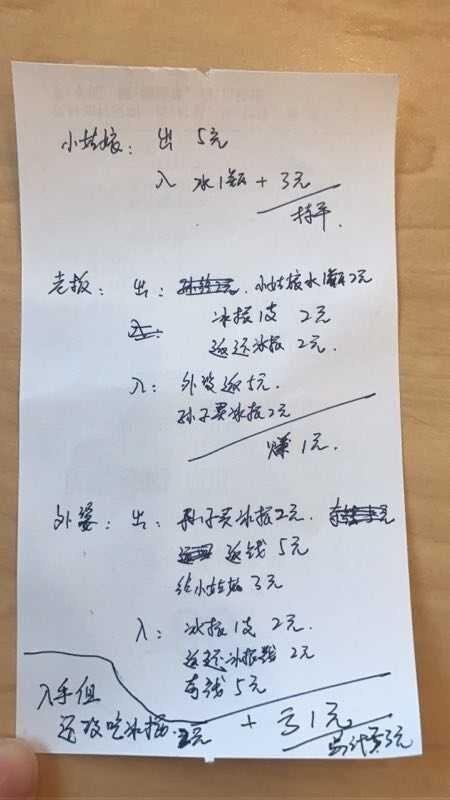 小姑娘：出 5元
入 水1瓶 + 3元
持平.
老板：出：小姑娘水1瓶2元
冰棍1支 2元
返还冰棍 2元.
入：外婆返5元.
孙子买冰棍2元
赚1元.
外婆：出：孙子买冰棍2元.
返钱 5元
给小姑娘 3元
入：冰棍1支 2元.
返还冰棍 2元
有钱 5元
入手但
还没吃冰棍. 2元
+ 亏1元
总计亏3元